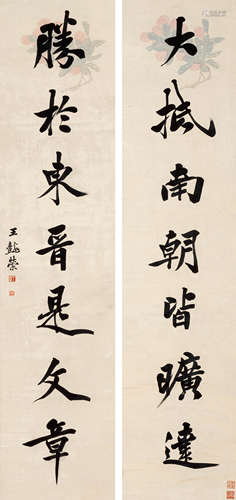 大抵南朝皆曠達
勝於東晋是文章
王懿榮